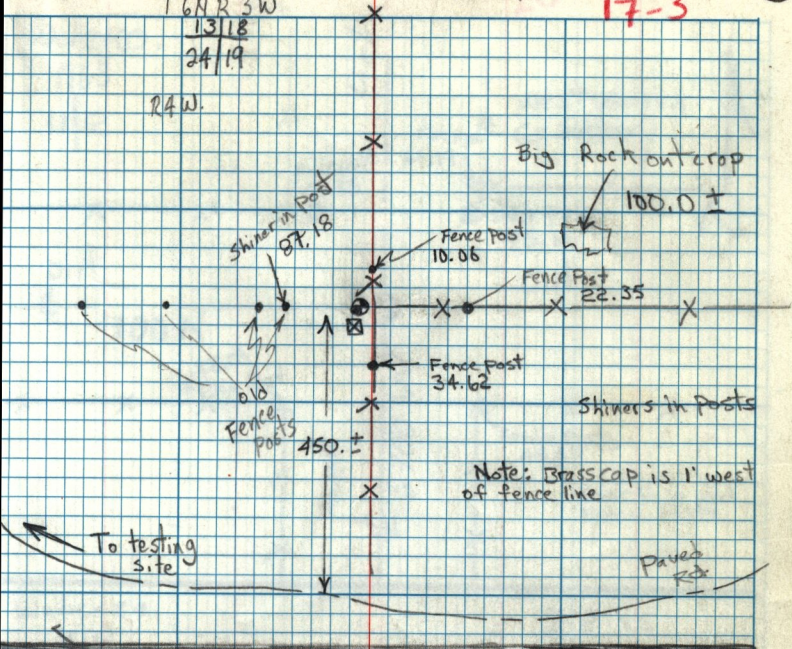 T6N R3W
13|18
24|19
17-3
R4W.
Big Rock outcrop
100.0 ±
Shiner in post
87.18
Fence post
10.06
Fence Post
22.35
Fence post
34.62
old
Fence
posts
450. ±
Shiners in posts
Note: Brass cap is 1' west
of fence line
To testing
site
Paved
Rd.